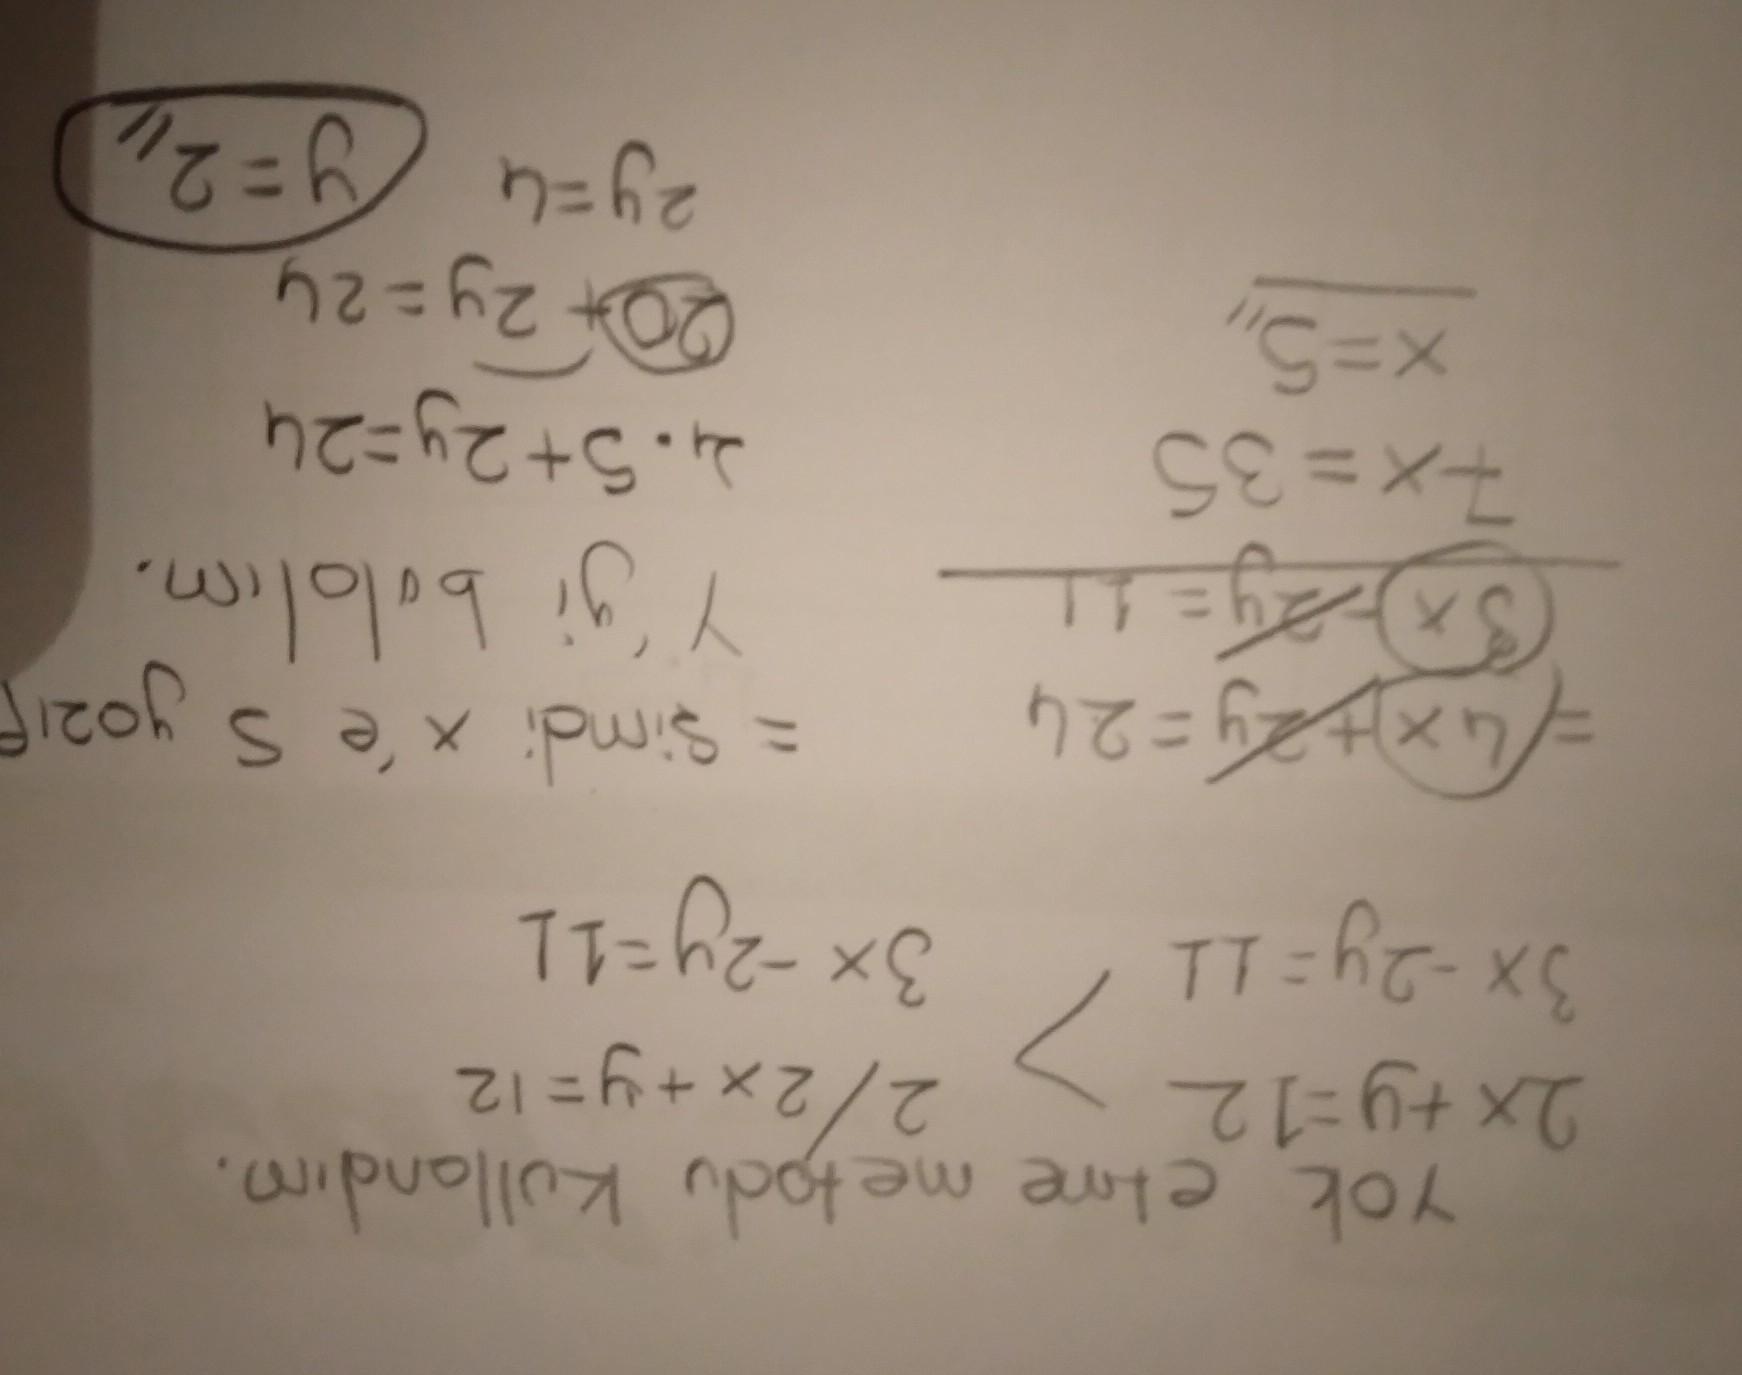 Yok etme metodu kullandım.
2x+y=12
3x-2y=11
2/2x+y=12
3x-2y=11
=4x+2y=24
3x-2y=11
7x=35
x=5
=şimdi x'e 5 yazıp
Y'yi bulalım.
4.5+2y=24
20+2y=24
2y=4
y=2